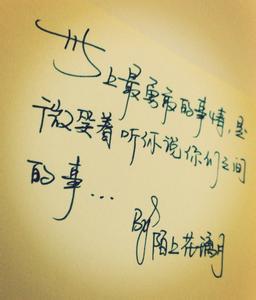 世上最勇敢的事情，是
微笑着听你说你们之间
的事...
By 陌上花满月